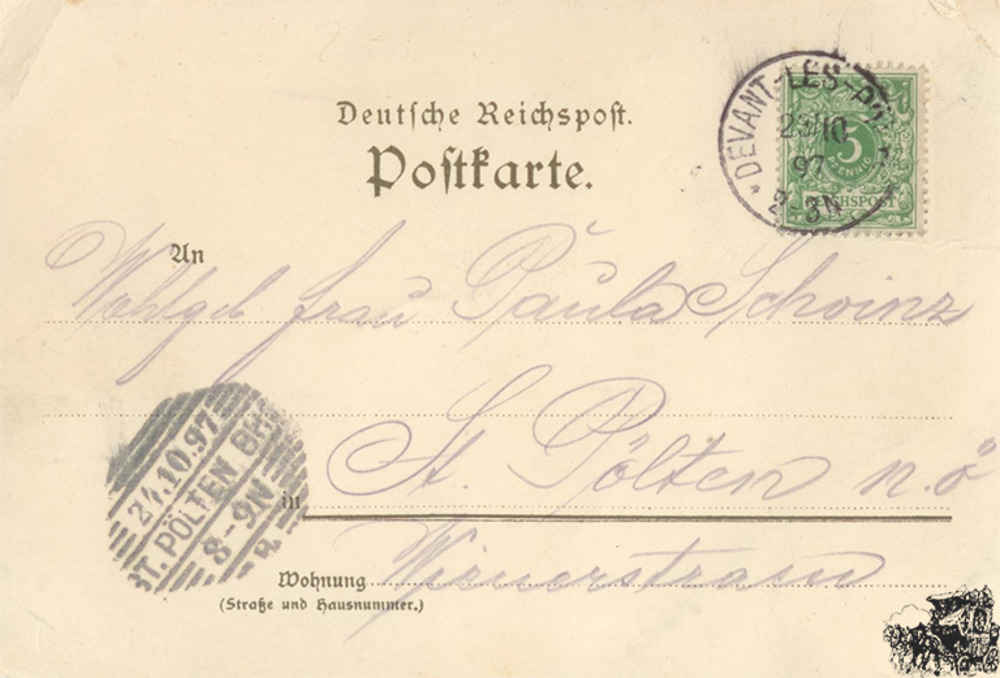 Deutsche Reichspost.
Postkarte.
* DEVANT-LES-P
23/10
97
2-3N
5
PFENNIG
REICHSPOST
An
Wohlgeb frau Paula Schoinz
St. Pölten n.ö
in
24.10.97
ST. PÖLTEN
8-9N
Wohnung Wienerstrasse
(Straße und Hausnummer.)